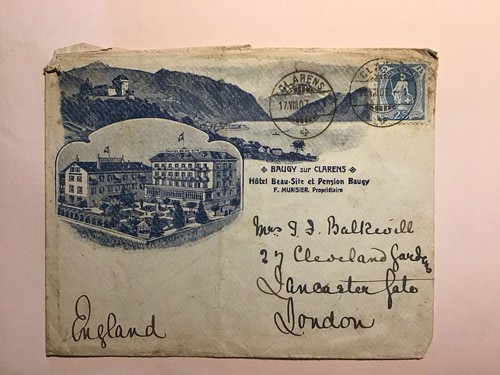 CLARENS
17.VIII.07
BAUGY sur CLARENS
Hôtel Beau-Site et Pension Baugy
F. MURISIER. Propriétaire
Mrs J. F. Balkwill
27 Cleveland Gardens
Lancaster Gate
London
England